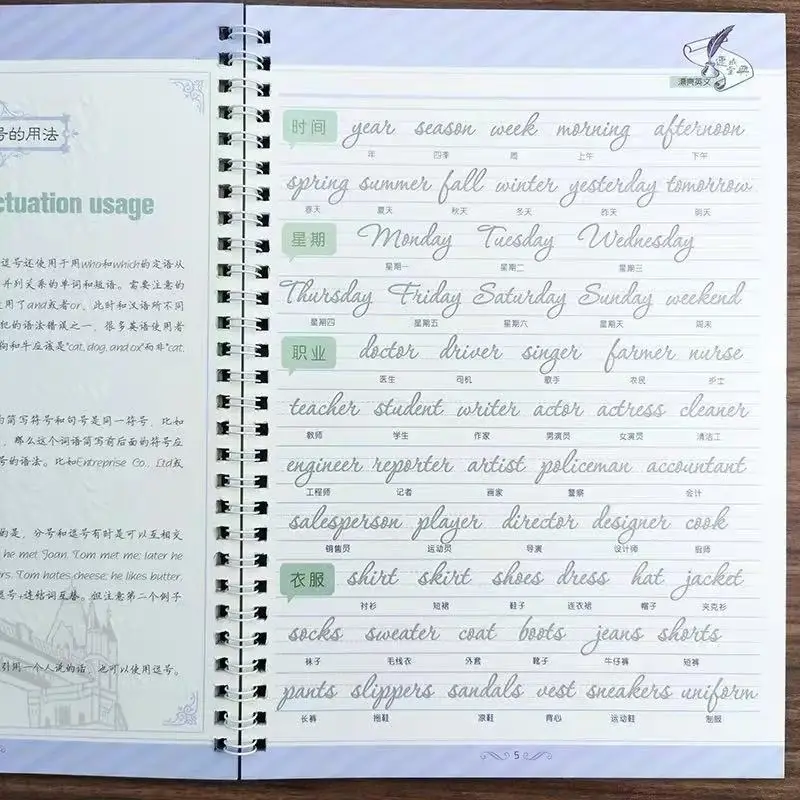 号的用法
ctuation usage
逗号还使用于用who和which的定语从
并列关系的单词和短语。需要注意的
使用了and或者or，此时和汉语所不同
犯的语法错误之一，很多英语使用者
狗和牛应该是"cat, dog, and ox"而非"cat,
的简写符号和句号是同一符号，比如
，那么这个词语简写前后面的符号应
号的语法。比如Entreprise Co., Ltd或
的是，分号和逗号有时是可以互相交
he met Joan. Tom met me; later he
ers. Tom hates cheese; he likes butter.
逗号+连结词互替。但注意第二个例子
引用一个人说的话，也可以使用逗号。
漂亮英文
速成字典
时间 year season week morning afternoon
年 四季 周 上午 下午
spring summer fall winter yesterday tomorrow
春天 夏天 秋天 冬天 昨天 明天
星期 Monday Tuesday Wednesday
星期一 星期二 星期三
Thursday Friday Saturday Sunday weekend
星期四 星期五 星期六 星期天 周末
职业 doctor driver singer farmer nurse
医生 司机 歌手 农民 护士
teacher student writer actor actress cleaner
教师 学生 作家 男演员 女演员 清洁工
engineer reporter artist policeman accountant
工程师 记者 画家 警察 会计
salesperson player director designer cook
销售员 运动员 导演 设计师 厨师
衣服 shirt skirt shoes dress hat jacket
衬衫 短裙 鞋子 连衣裙 帽子 夹克衫
socks sweater coat boots jeans shorts
袜子 毛线衣 外套 靴子 牛仔裤 短裤
pants slippers sandals vest sneakers uniform
长裤 拖鞋 凉鞋 背心 运动鞋 制服
5